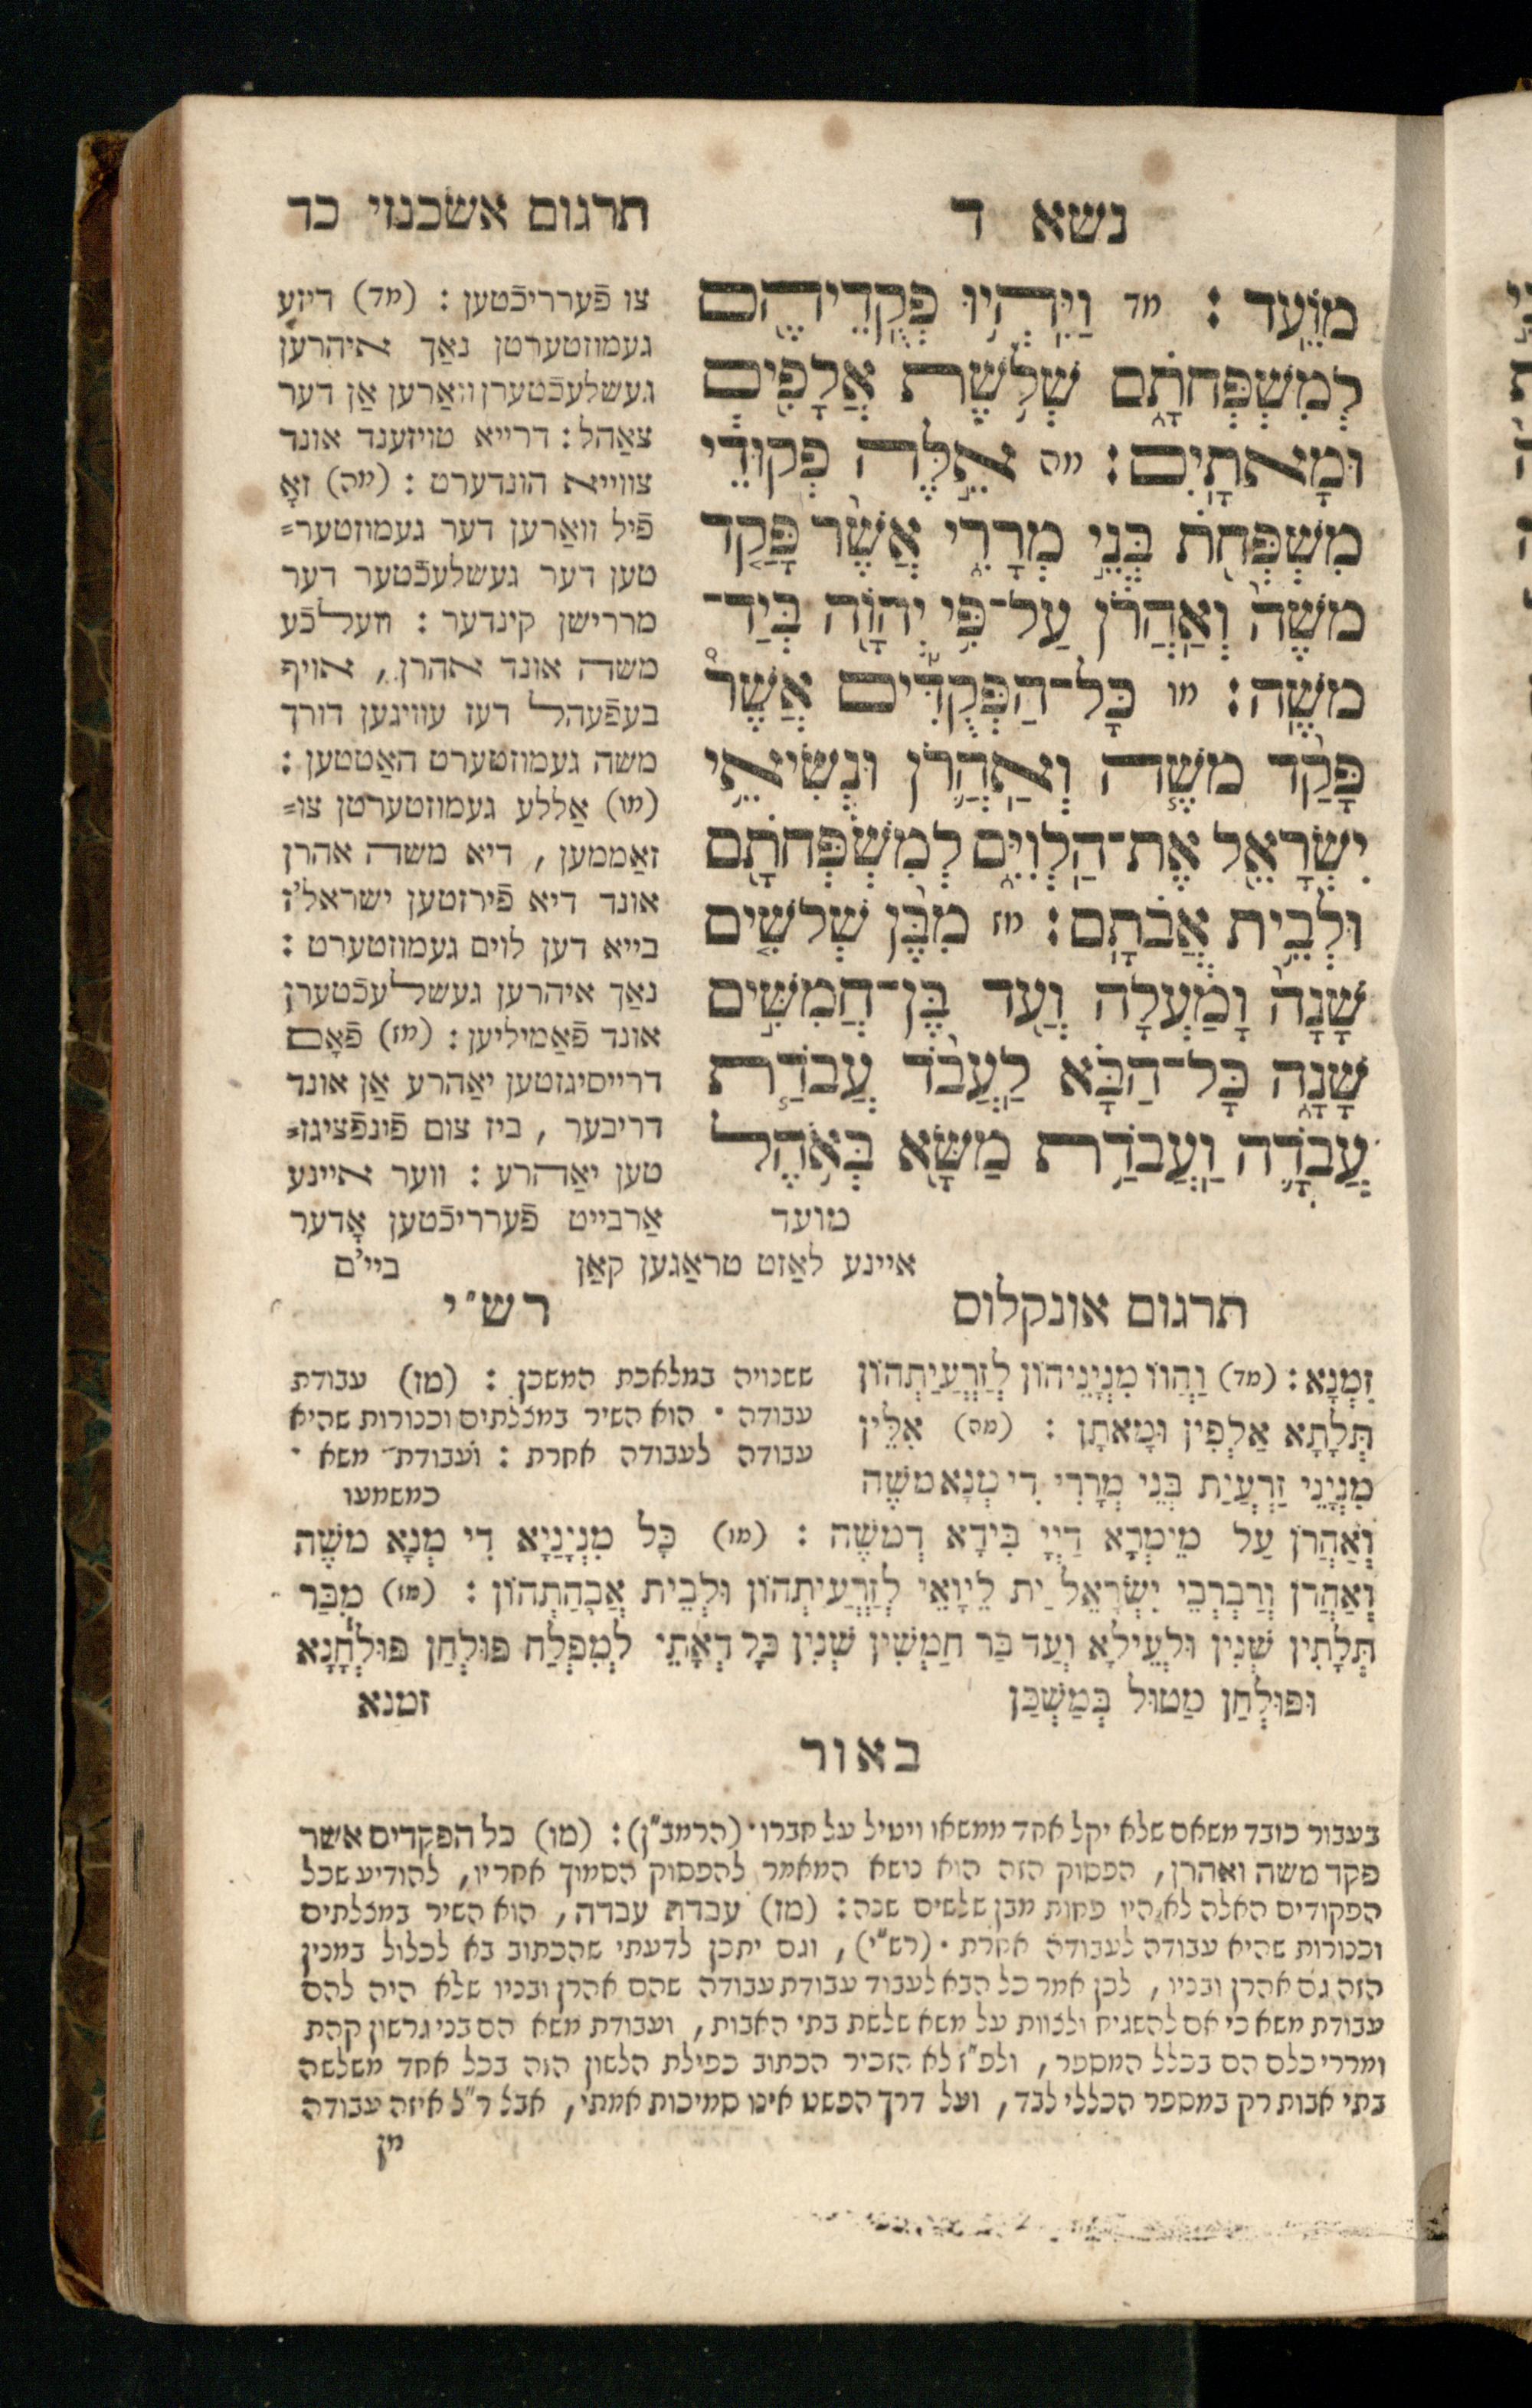 נשא ד
תרגום אשכנזי כד
מוֹעֵֽד׃ מד וַיִּֽהְי֥וּ פְקֻדֵיהֶ֖ם
לְמִשְׁפְּחֹתָ֑ם שְׁלֹ֥שֶׁת אֲלָפִ֖ים
וּמָאתָֽיִם׃ מה אֵ֣לֶּה פְקוּדֵ֔י
מִשְׁפְּחֹ֖ת בְּנֵ֣י מְרָרִ֑י אֲשֶׁ֨ר פָּקַ֤ד
מֹשֶׁה֙ וְאַהֲרֹ֔ן עַל־פִּ֥י יְהוָֹ֖ה בְּיַד־
מֹשֶֽׁה׃ מו כָּֽל־הַפְּקֻדִ֡ים אֲשֶׁר֩
פָּקַ֨ד מֹשֶׁ֧ה וְאַהֲרֹ֛ן וּנְשִׂיאֵ֥י
יִשְׂרָאֵ֖ל אֶת־הַלְוִיִּ֑ם לְמִשְׁפְּחֹתָ֖ם
וּלְבֵ֥ית אֲבֹתָֽם׃ מז מִבֶּ֨ן שְׁלֹשִׁ֤ים
שָׁנָה֙ וָמַ֔עְלָה וְעַ֖ד בֶּן־חֲמִשִּׁ֣ים
שָׁנָ֑ה כָּל־הַבָּ֗א לַעֲבֹ֨ד עֲבֹדַ֧ת
עֲבֹדָ֛ה וַעֲבֹדַ֥ת מַשָּׂ֖א בְּאֹ֥הֶל
מועד
צו פֿערריכֿטען : (מד) דיזע
געמוזטערטן נאַך איהרען
געשלעכֿטערן וואַרען אַן דער
צאַהל : דרייא טויזענד אונד
צווייא הונדערט : (מה) זאָ
פֿיל וואַרען דער געמוזטער=
טען דער געשלעכֿטער דער
מררישן קינדער : וועלכֿע
משה אונד אהרן, אויף
בעפֿעהל דעז עוויגען דורך
משה געמוזטערט האַטטען :
(מו) אַללע געמוזטערטן צו=
זאַממען, דיא משה אהרן
אונד דיא פֿירזטען ישראל'ז
בייא דען לוים געמוזטערט :
נאַך איהרען געשלעכֿטערן
אונד פֿאַמיליען : (מז) פֿאָם
דרייסיגזטען יאַהרע אַן אונד
דריבער, ביז צום פֿינפֿציגז=
טען יאַהרע : ווער איינע
אַרבייט פֿערריכֿטען אָדער
איינע לאַזט טראַגען קאַן
ביי'ם
תרגום אונקלוס
זִמְנָא : (מד) וַהֲווֹ מִנְיָנֵיהוֹן לְזַרְעֲיַתְהוֹן
תְּלָתָא אַלְפִין וּמָאתָן : (מה) אִלֵּין
מִנְיָנֵי זַרְעֲיַת בְּנֵי מְרָרִי דִּי מְנָא מֹשֶׁה
וְאַהֲרֹן עַל מֵימְרָא דַיְיָ בִּידָא דְמֹשֶׁה : (מו) כָּל מִנְיָנַיָא דִּי מְנָא מֹשֶׁה
וְאַהֲרֹן וְרַבְרְבֵי יִשְׂרָאֵל יַת לֵיוָאֵי לְזַרְעֲיַתְהוֹן וּלְבֵית אֲבָהַתְהוֹן : (מז) מִבַּר
תְּלָתִין שְׁנִין וּלְעֵילָא וְעַד בַּר חַמְשִׁין שְׁנִין כָּל דְּאָתֵי לְמִפְלַח פּוּלְחַן פּוּלְחָנָא
וּפוּלְחַן מַטּוּל בְּמַשְׁכַּן
זמנא
רש"י
ששנויה במלאכת המשכן : (מז) עבודת
עבודה • הוא השיר במצלתים וכנורות שהיא
עבודה לעבודה אחרת : ועבודת משא •
כמשמעו
באור
בעבור כובד משאם שלא יקל אחד ממשאו ויטיל על חברו • (הרמב"ן) : (מו) כל הפקדים אשר
פקד משה ואהרן, הפסוק הזה הוא נושא המאמר להפסוק הסמוך אחריו, להודיע שכל
הפקודים האלה לא היו פחות מבן שלשים שנה : (מז) עבדת עבדה, הוא השיר במצלתים
וכנורות שהיא עבודה לעבודה אחרת • (רש"י), וגם יתכן לדעתי שהכתוב בא לכלול במנין
הזה גם אהרן ובניו, לכן אמר כל הבא לעבוד עבודת עבודה שהם אהרן ובניו שלא היה להם
עבודת משא כי אם להשגיח ולצוות על משא שלשת בתי האבות, ועבודת משא הם בני גרשון קהת
ומררי כלם הם בכלל המספר, ולפ"ז לא הזכיר הכתוב כפילת הלשון הזה בכל אחד משלשה
בתי אבות רק במספר הכללי לבד, ועל דרך הפשט אינו סמיכות אמתי, אבל ר"ל איזה עבודה
מן